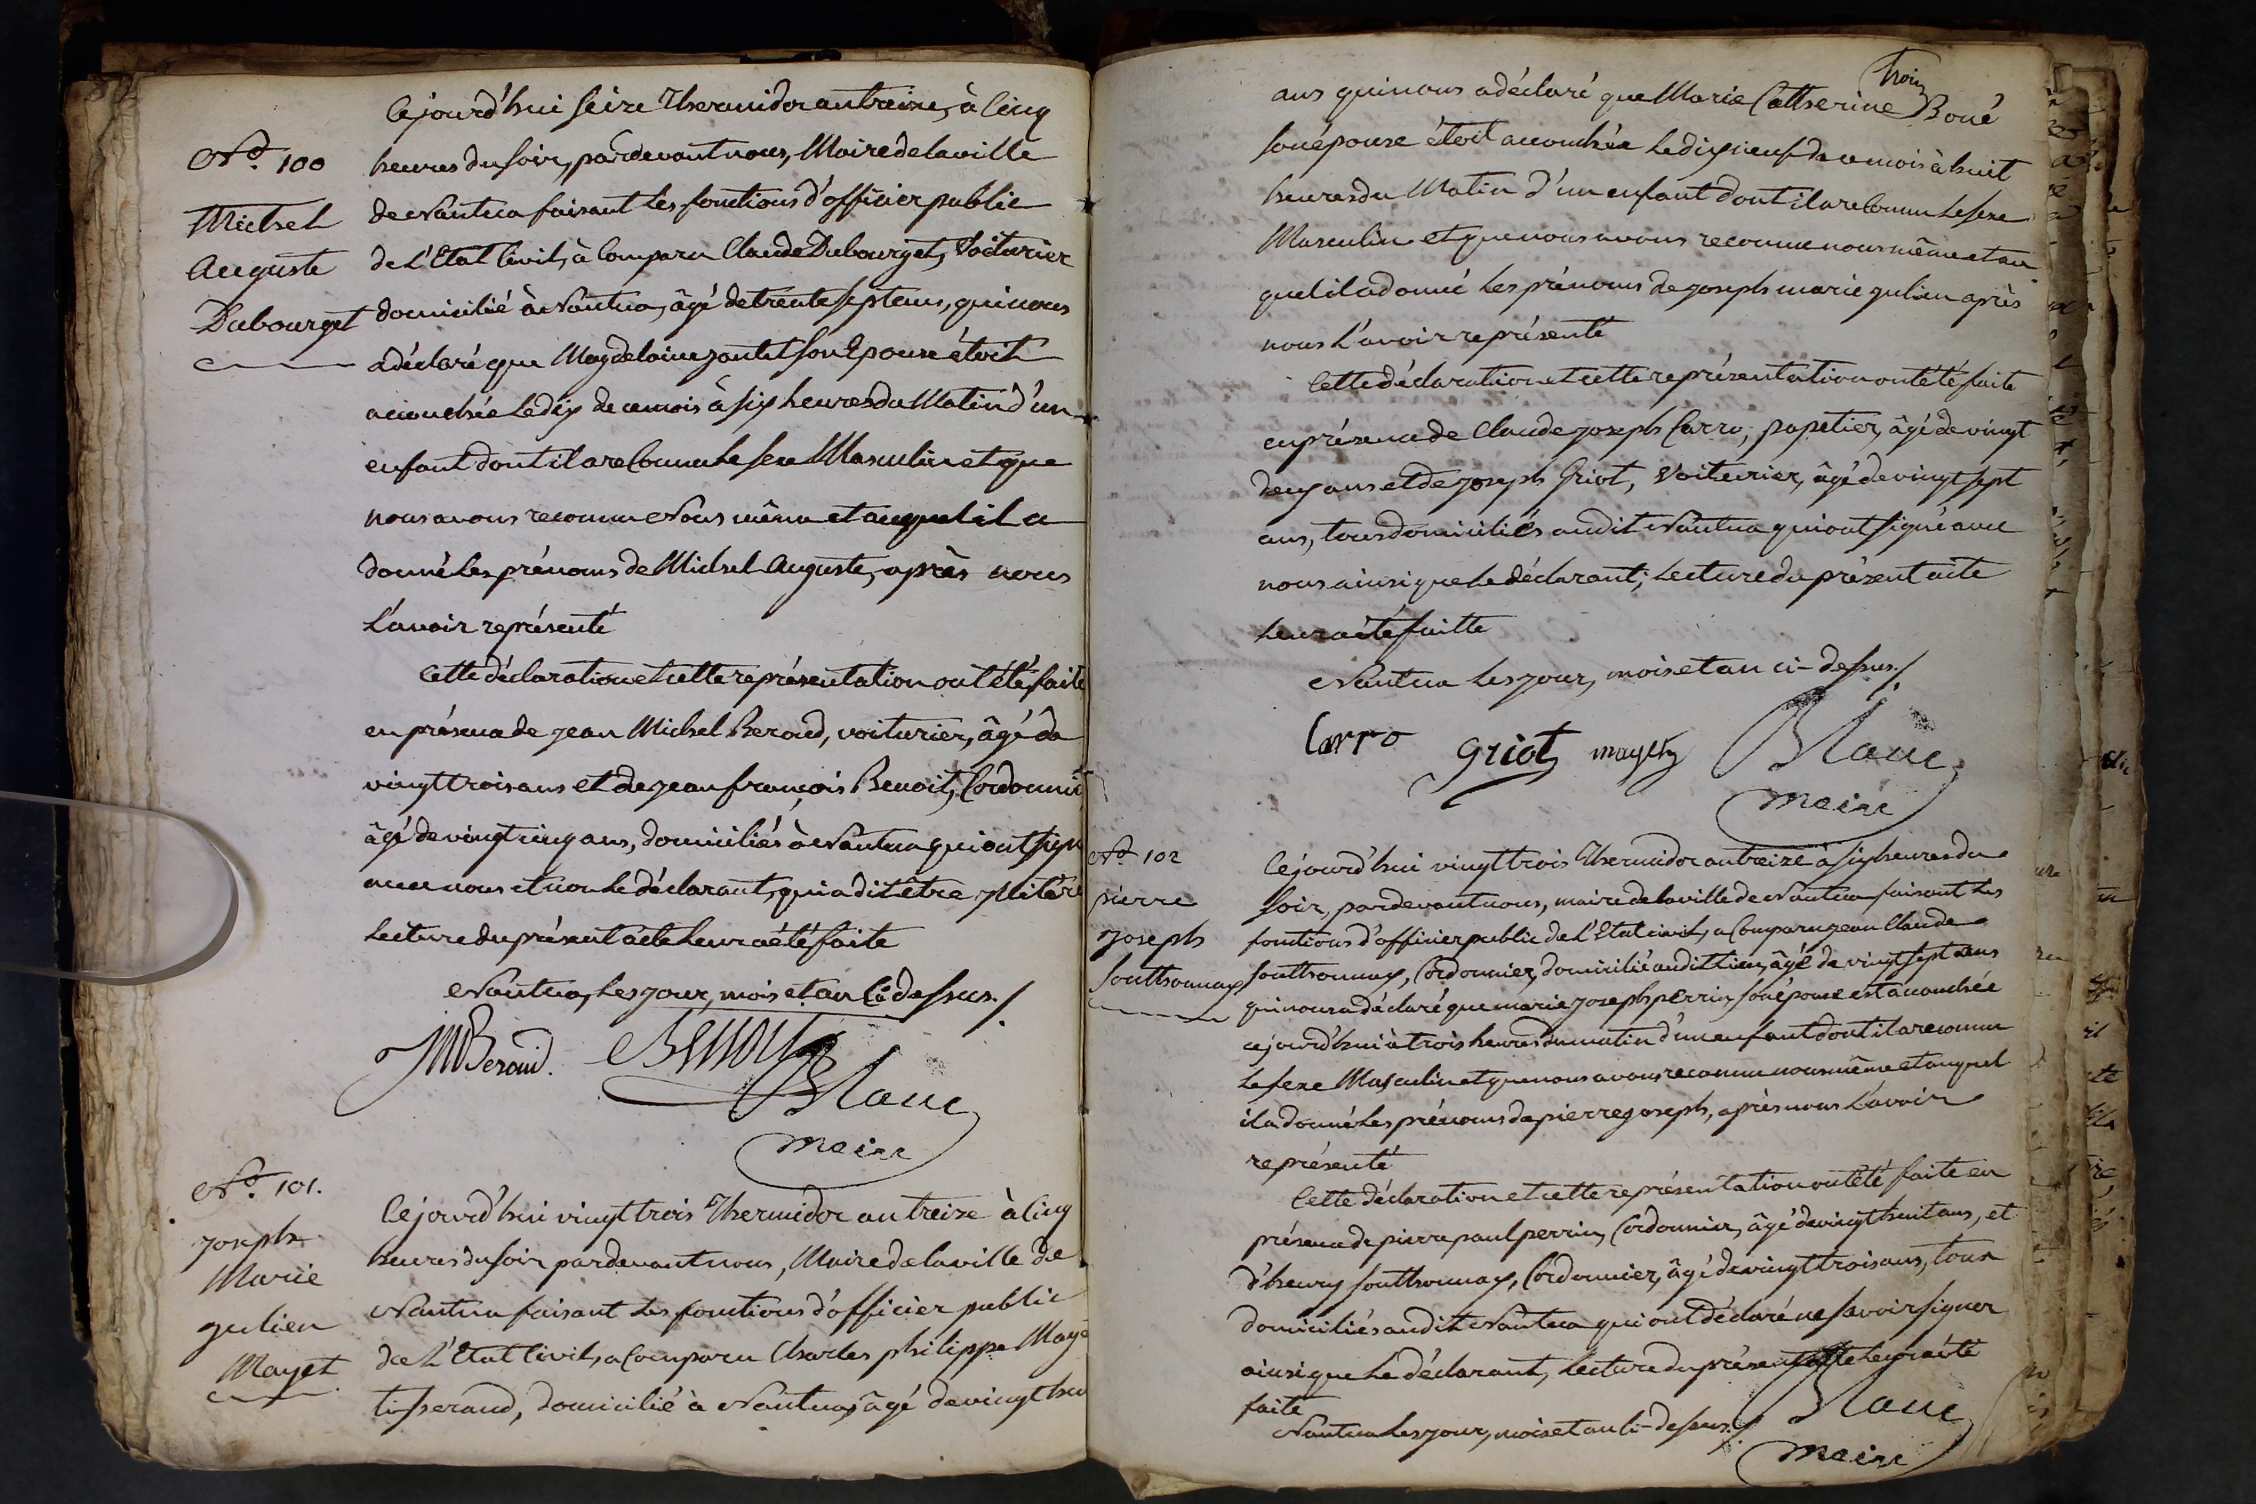 Nº. 100
Michel
Auguste
Dubourget
Cejourd'hui Seize Thermidor an treize, à Cinq
heures du soir, pardevant nous, Maire de la ville
de Nantua faisant les fonctions d'officier public
de L'Etat Civil, à Comparu Claude Dubourget, Voiturier
domicilié à Nantua, âgé de trente sept ans, qui nous
a déclaré que Magdelaine Son Epouse étoit
accouchée le dix de ce mois à six heures du Matin d'un
enfant dont il a reConnu le sexe Masculin et que
nous avons reconnu Nous même et auquel il a
donné les prénoms de Michel Auguste, après nous
l'avoir représenté
Cette déclaration et cette représentation ont été faite
en présence de jean Michel Beroud, voiturier, âgé de
vingt trois ans et de jean françois Benoit, Cordonni
âgé de vingt cinq ans, domiciliés à Nantua qui ont sign
avec nous et non le déclarant, qui a dit être
Lecture du présent acte leur a été faite
Nantua, les jour, mois et an Ci dessus ./.
JMBeroud. Benoit
Blanc
maire
Nº. 101.
joseph
Marie
julien
Mayet
Cejourd'hui vingt trois Thermidor an treize à Cinq
heures du soir pardevant nous, Maire de la ville de
Nantua faisant les fonctions d'officier public
de L'Etat Civil, a Comparu Charles philippe Maye
tisserand, domicilié à Nantua, âgé de vingt hui
trois
ans qui nous a déclaré que Marie Catherine Boué
son épouse étoit accouchée le dix neuf de ce mois à huit
heures du Matin d'un enfant dont il a reConnu le sexe
Masculin et que nous avons reconnu nous même et au
quel il a donné les prénoms de joseph marie julien après
nous l'avoir représenté
Cette déclaration et cette représentation ont été faite
en présence de Claude joseph Carro, papetier, âgé de vingt
deux ans et de joseph Griot, Voiturier, âgé de vingt sept
ans, tous domiciliés audit Nantua qui ont signé avec
nous ainsi que le déclarant; lecture du présent acte
leur a été faitte
Nantua les jour, mois et an ci-dessus ./.
Carro Griot mayet Blanc
maire
Nº 102
pierre
joseph
Southonnax
Cejourd'hui vingt trois Thermidor an treize à six heures du
soir, pardevant nous, maire de la ville de Nantua faisant les
fonctions d'officier public de L'Etat civil, a Comparu jean Claude
southonnax, Cordonnier, domicilié audit lieu, âgé de vingt sept ans
qui nous a déclaré que marie joseph perrin, son épouse est accouchée
cejourd'hui à trois heures du matin d'un enfant dont il a reconnu
le sexe Masculin et que nous avons reconnu nous même et auquel
il a donné les prénoms de pierre joseph, après nous l'avoir
représenté
Cette déclaration et cette représentation ont été faite en
présence de pierre paul perrin, Cordonnier, âgé de vingt huit ans, et
d'henry southonnax, Cordonnier, âgé de vingt trois ans, tous
domiciliés audit Nantua qui ont déclaré ne savoir signer
ainsi que le déclarant, lecture du présent acte leur a été
faite
Nantua les jour, mois et an ci-dessus ./.
Blanc
maire